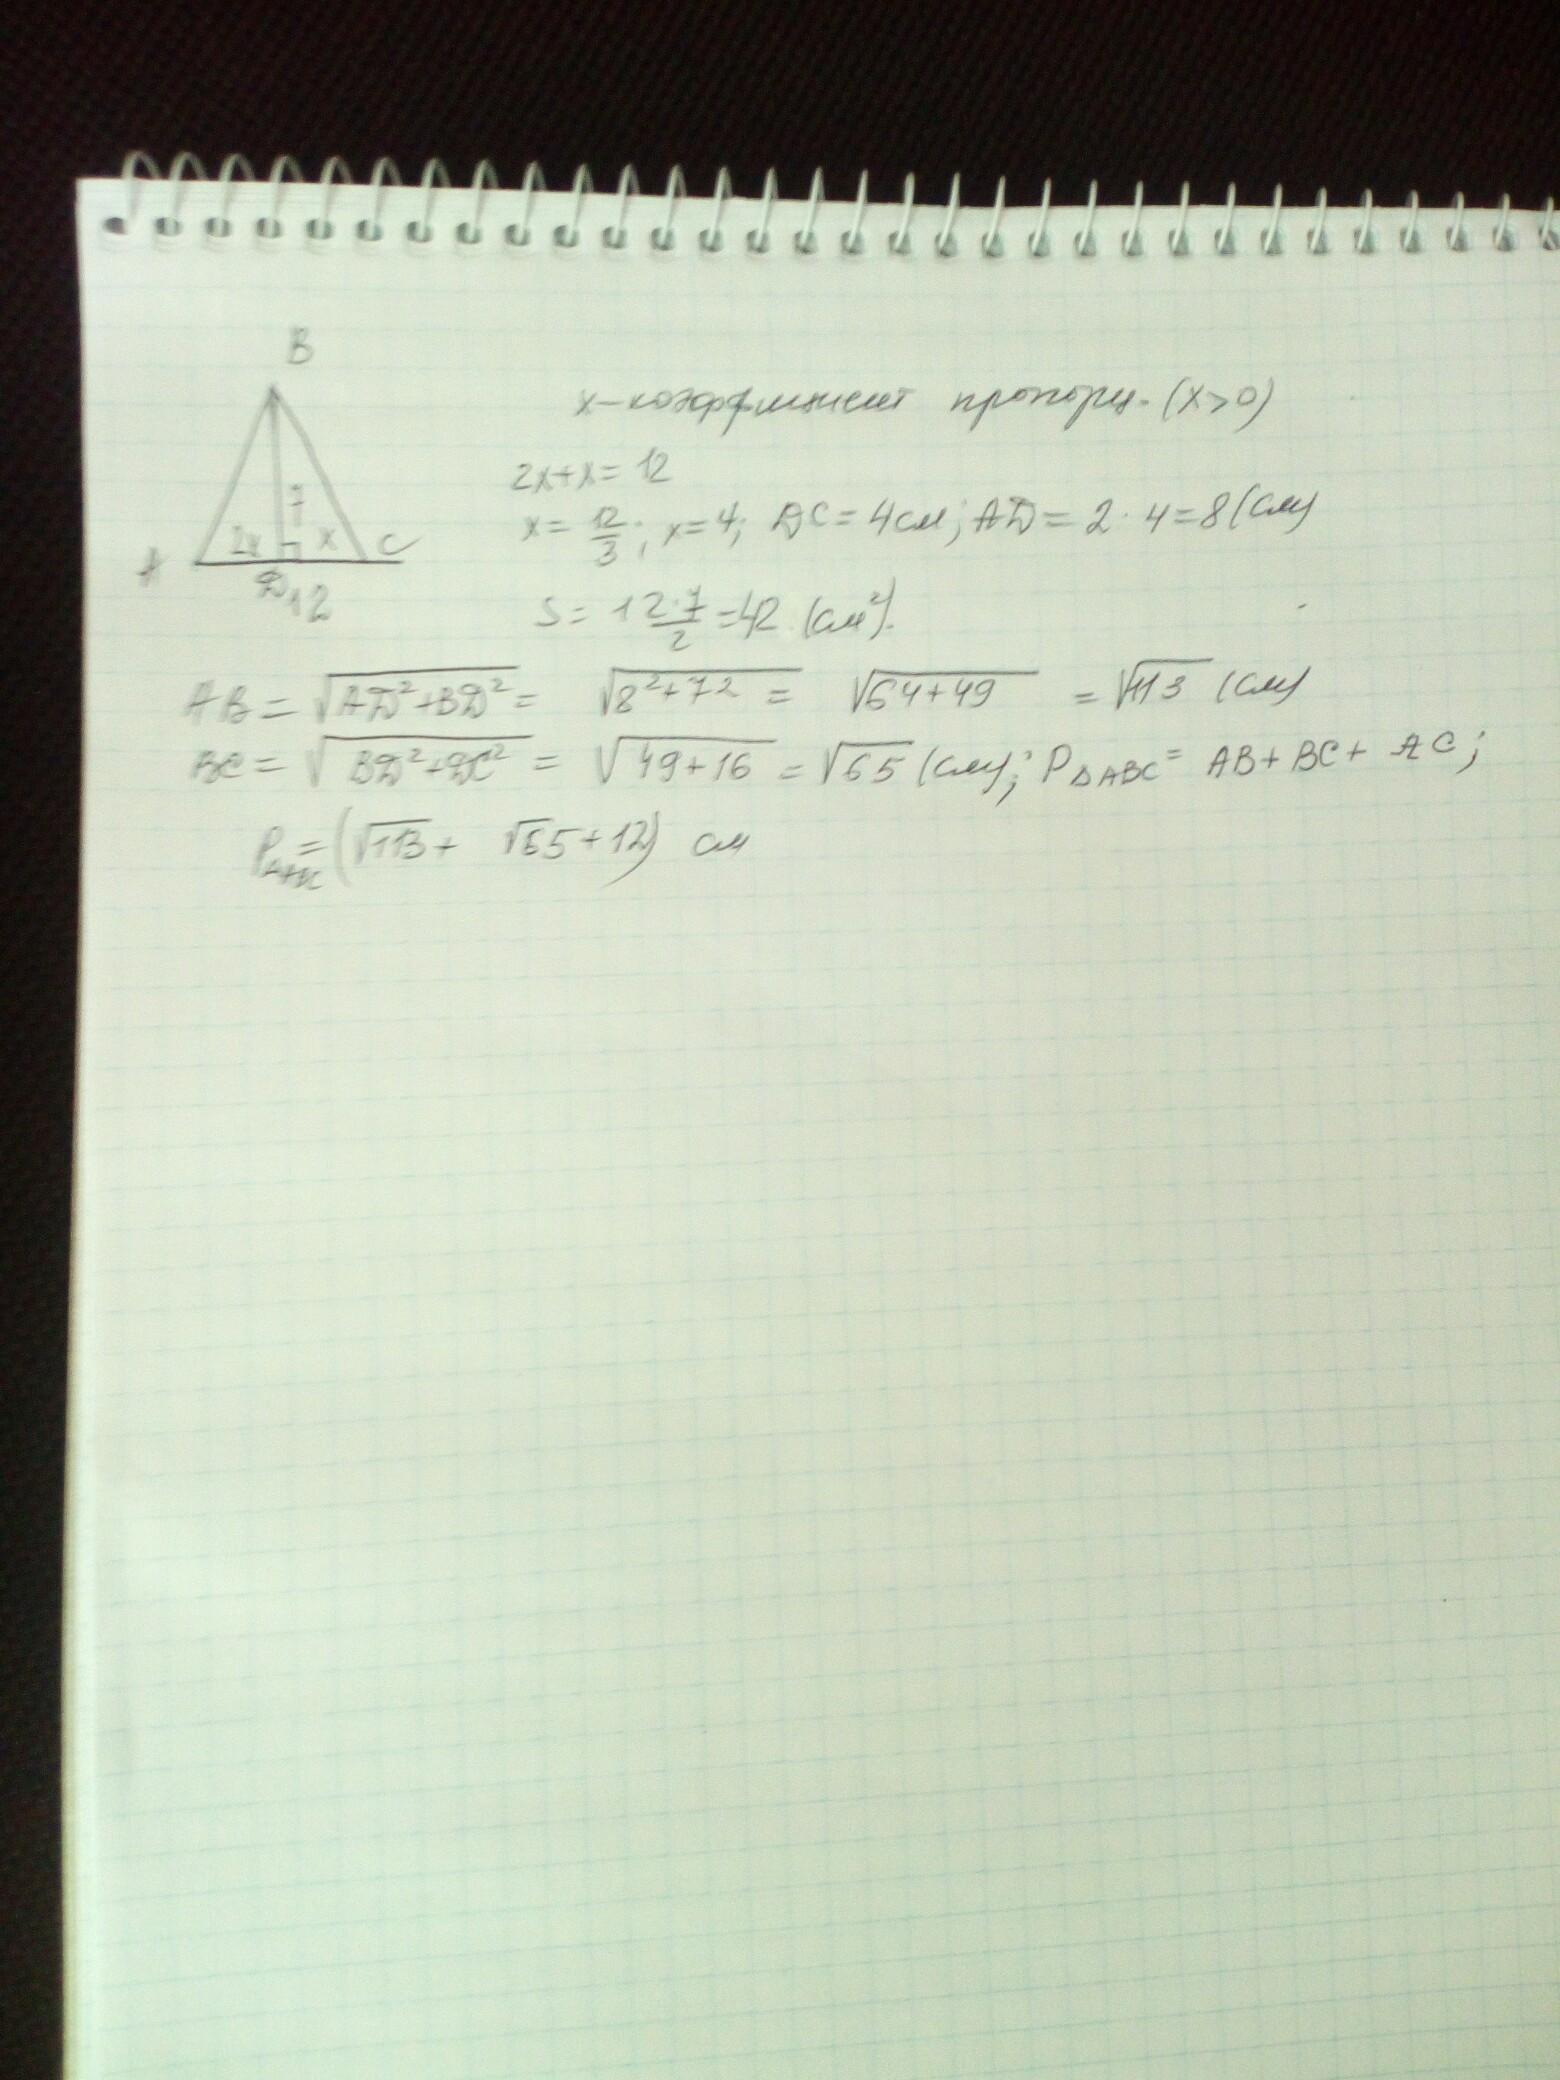 B
x-коэффициент пропорц. (x>0)
2x+x=12
x=12/3; x=4; DC=4см; AD=2·4=8(см)
7
2x x
A C
D
12
S=12·7/2=42 (см²).
AB=√AD²+BD²= √8²+72 = √64+49 =√113 (см)
BC=√BD²+DC² = √49+16 =√65 (см); PΔABC= AB+BC+AC;
P =(√113+ √65+12) см